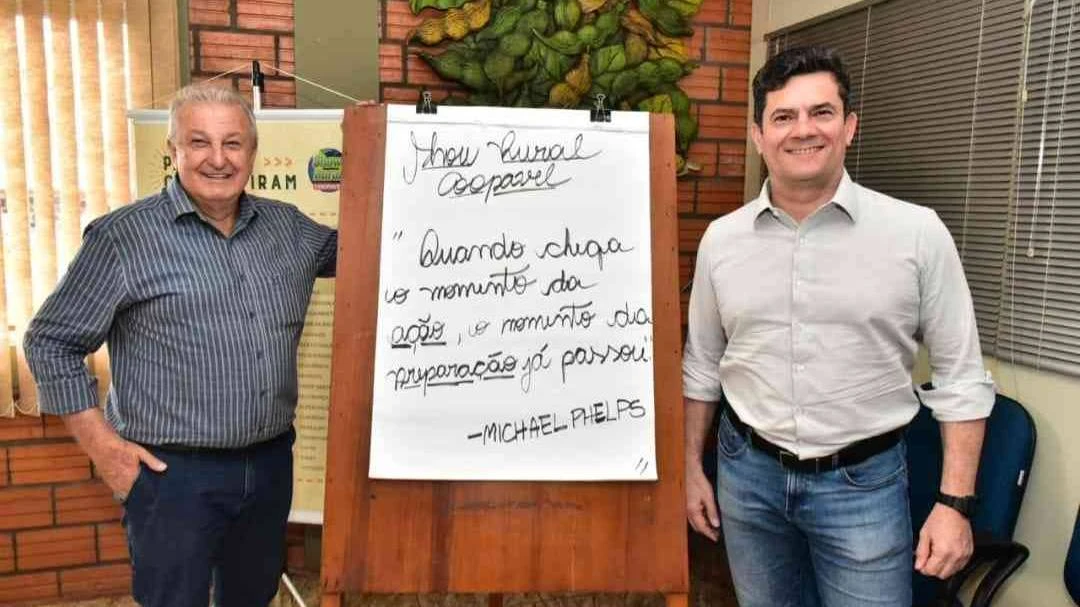 Show Rural
Coopavel
"Quando chega
o momento da
ação, o momento da
preparação já passou".
-MICHAEL PHELPS
"
P >>>
IRAM